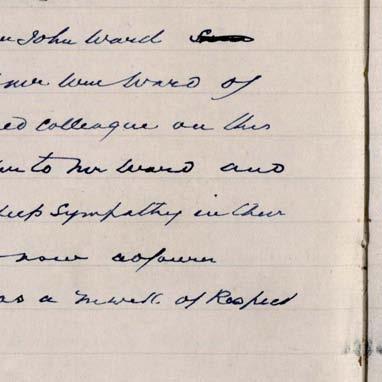 John Ward
Mr Wm Ward of
ed colleague on this
to Mr Ward and
deep Sympathy in their
now adjourn
as a mark of Respect